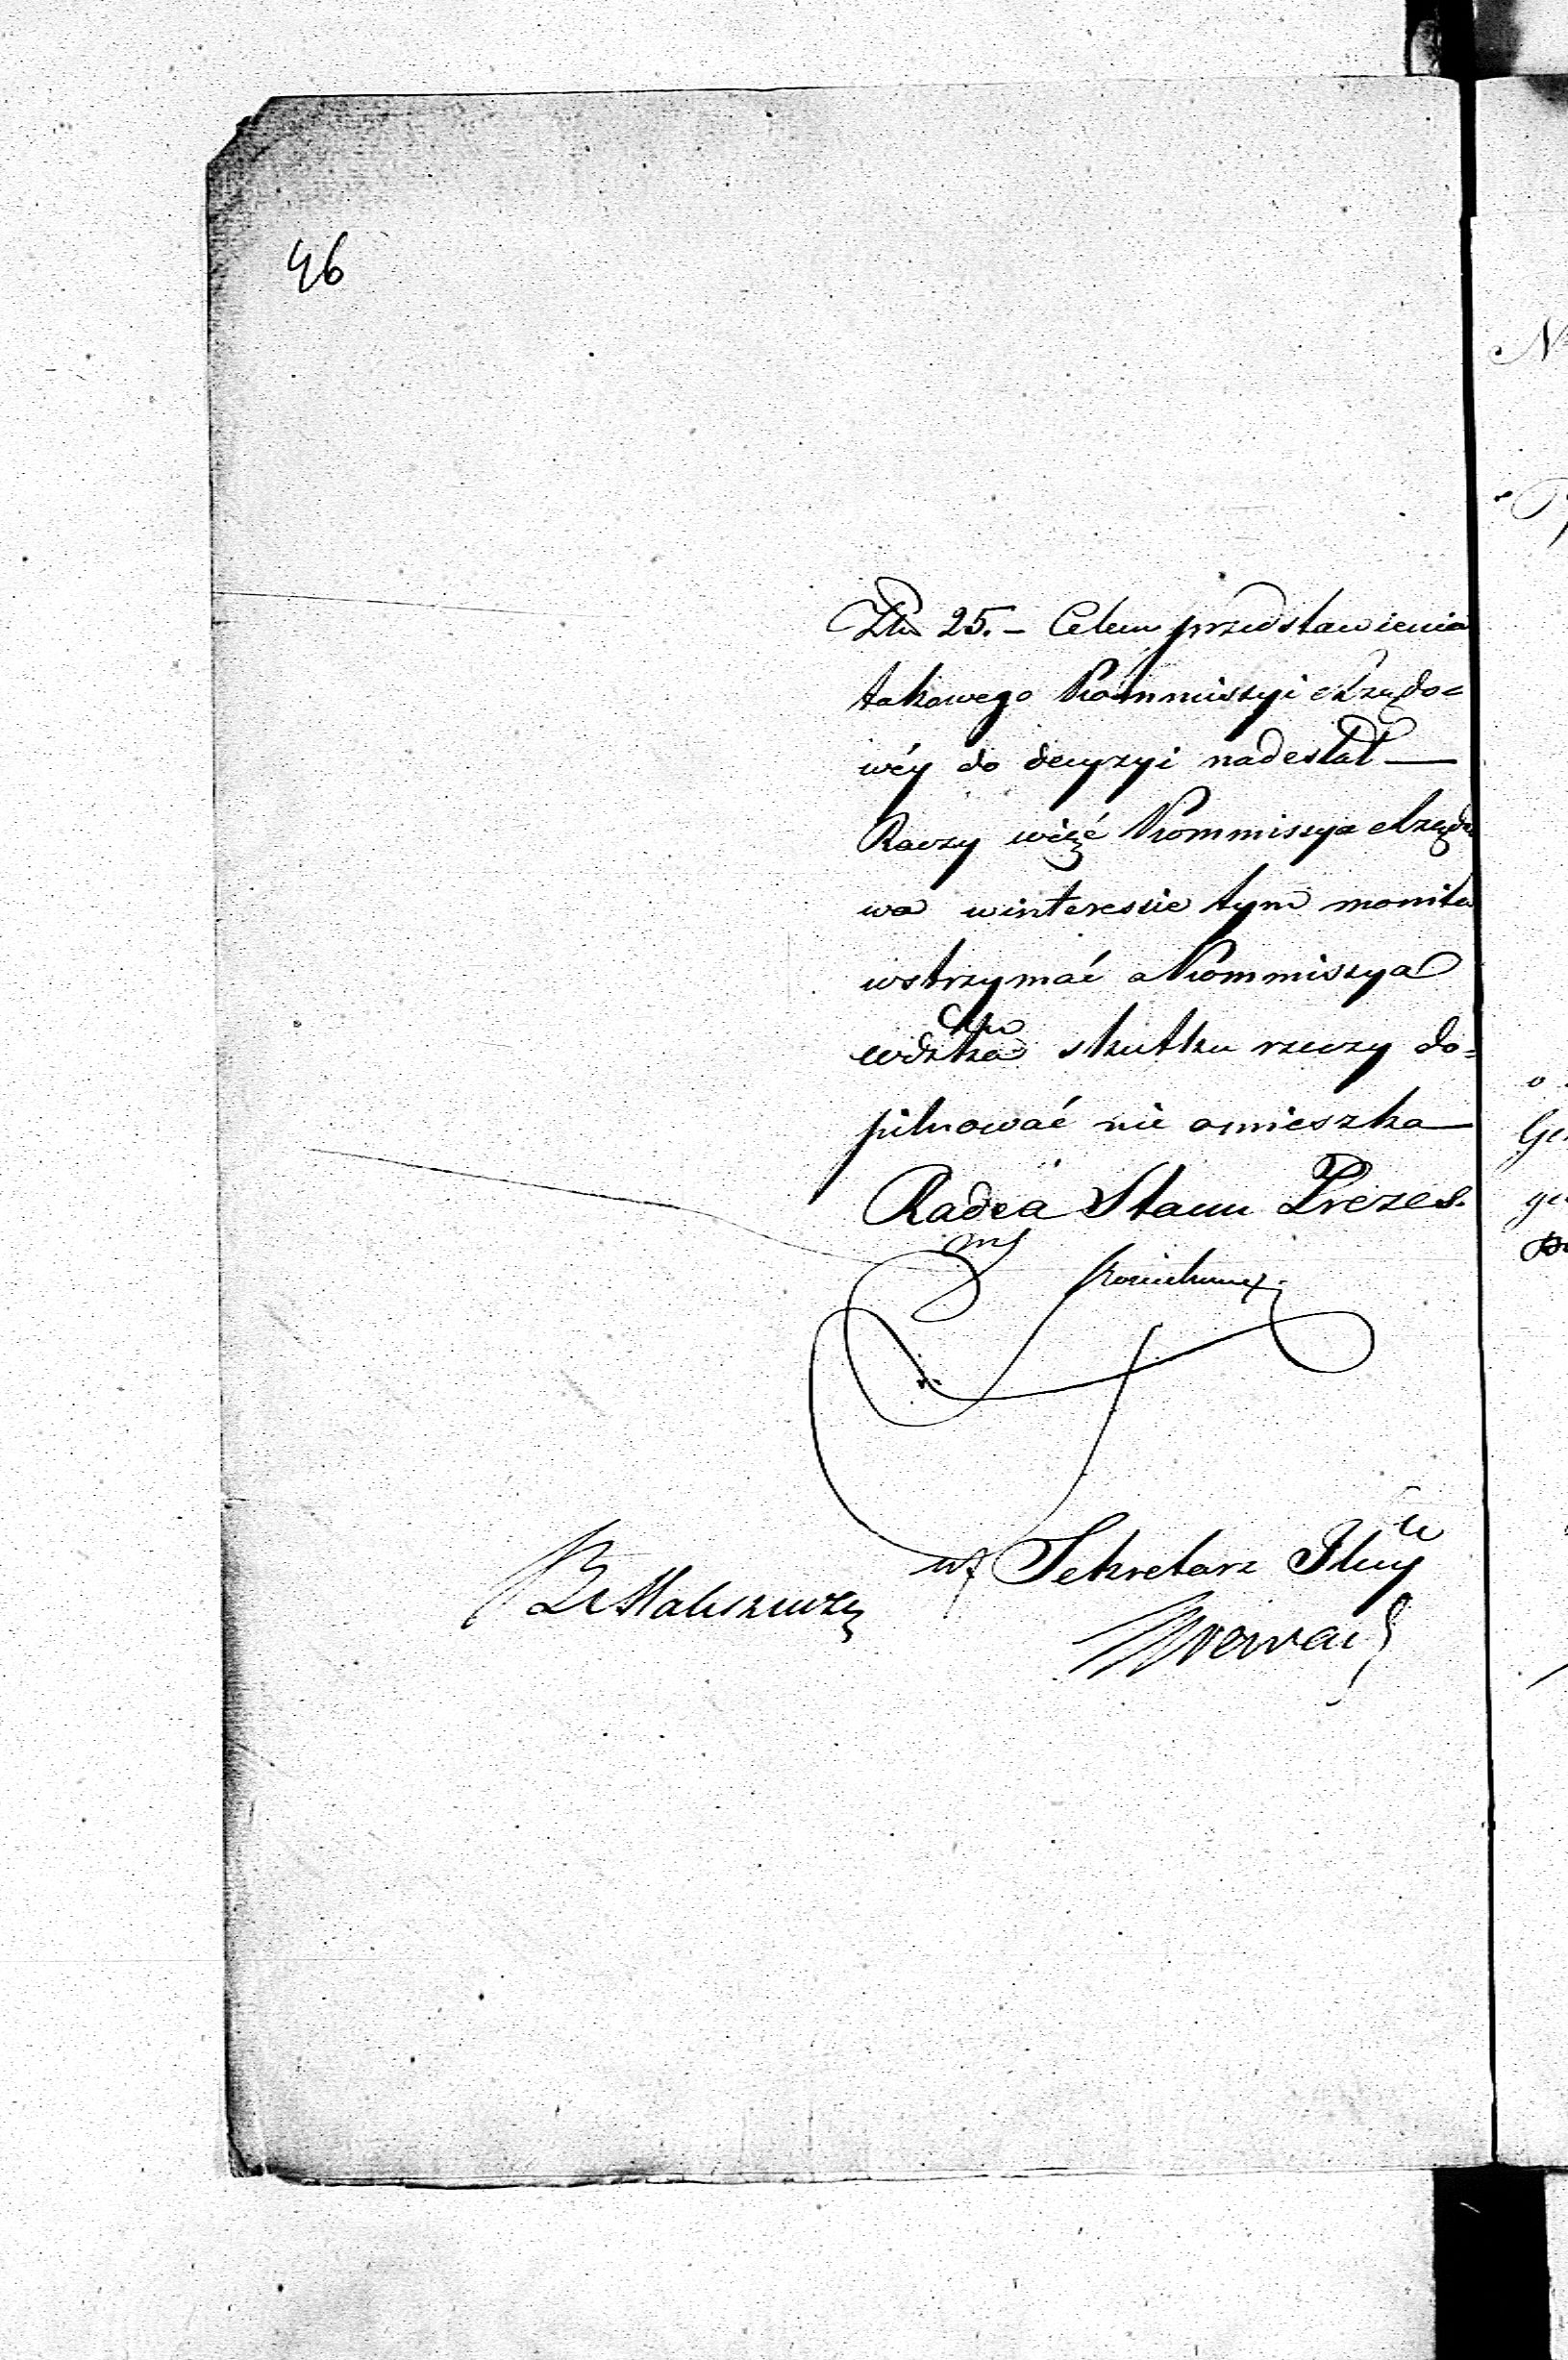 46
Zł. 25. – Celem przedstawienia
takowego Kommissyi Rządo=
wéy do decyzyi nadesłał —
Raczy więć Kommissya Rządo
wa winteressie tym monita
wstrzymać a Kommissya
Wdzka skutku rzeczy do=
pilnować nie omieszka
Radca Stanu Prezes.
Sekretarz Jlny